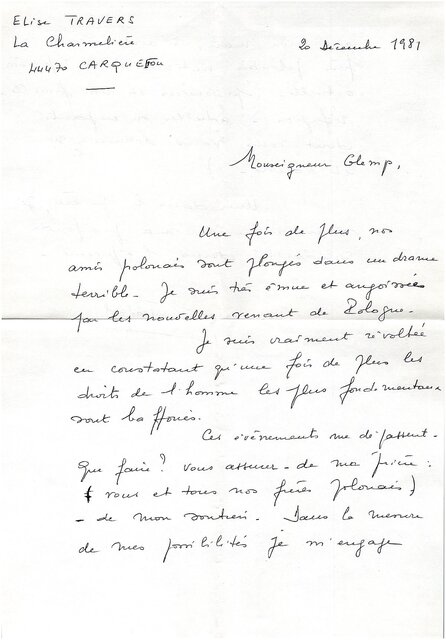 Elise TRAVERS
La Charmelière
44470 CARQUEFOU
20 Décembre 1981
Monseigneur Glemp,
Une fois de plus, nos
amis polonais sont plongés dans un drame
terrible. Je suis très émue et angoissée
par les nouvelles venant de Pologne.
Je suis vraiment révoltée
en constatant qu'une fois de plus les
droits de l'homme les plus fondamentaux
sont baffoués.
Ces évènements me dépassent.
Que faire? vous assurer - de ma prière :
( vous et tous nos frères polonais )
- de mon soutien. Dans la mesure
de mes possibilités je m'engage